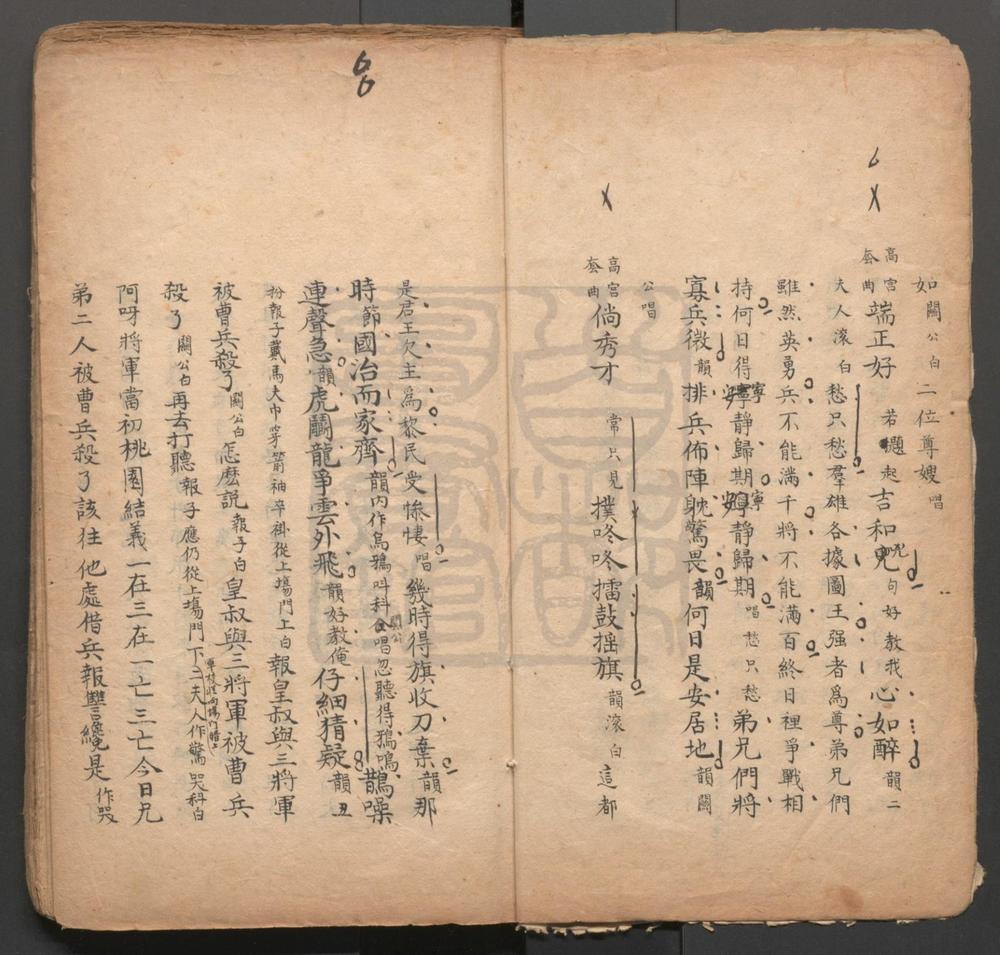 如關公白二位尊嫂唱
高宮套曲端正好若題起吉和凶句好教我心如醉韻二
夫人滾白愁只愁羣雄各據圖王强者為尊弟兄們
雖然英勇兵不能滿千將不能滿百終日裡爭戰相
持何日得寧靜歸期寧靜歸期唱愁只愁弟兄們將
寡兵微韻排兵佈陣躭驚畏韻何日是安居地韻關
公唱
高宮套曲倘秀才常只見撲咚咚擂鼓摇旗韻滾白這都
是君王欠主為黎民受慘悽唱幾時得旗收刀棄韻那
時節國治而家齊韻內作烏鴉叫科關公唱忽聽得鴉鳴鵲噪
連聲急韻虎鬬龍爭雲外飛韻好教俺仔細猜疑韻丑
扮報子戴馬夫巾穿箭袖卒褂從上塲門上白報皇叔與三將軍
被曹兵殺了關公白怎麽說報子白皇叔與三將軍被曹兵
殺了關公白再去打聽報子應仍從上塲門下二夫人作驚哭科白
阿呀將軍當初桃園結義一在三在一亡三亡今日兄
弟二人被曹兵殺了該往他處借兵報讐纔是作哭
6
X
X
66